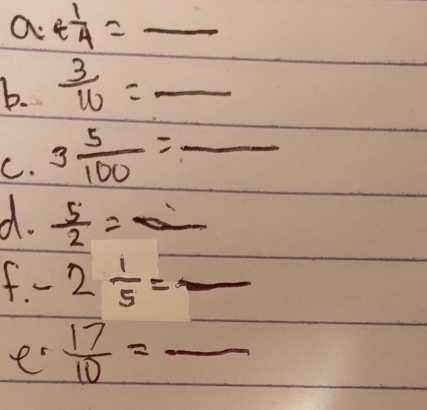 a. 1/4 = ___
b. 3/10 = ___
c. 3 5/100 = ___
d. 5/2 = ___
f. - 2 1/5 = ___
e. 17/10 = ___